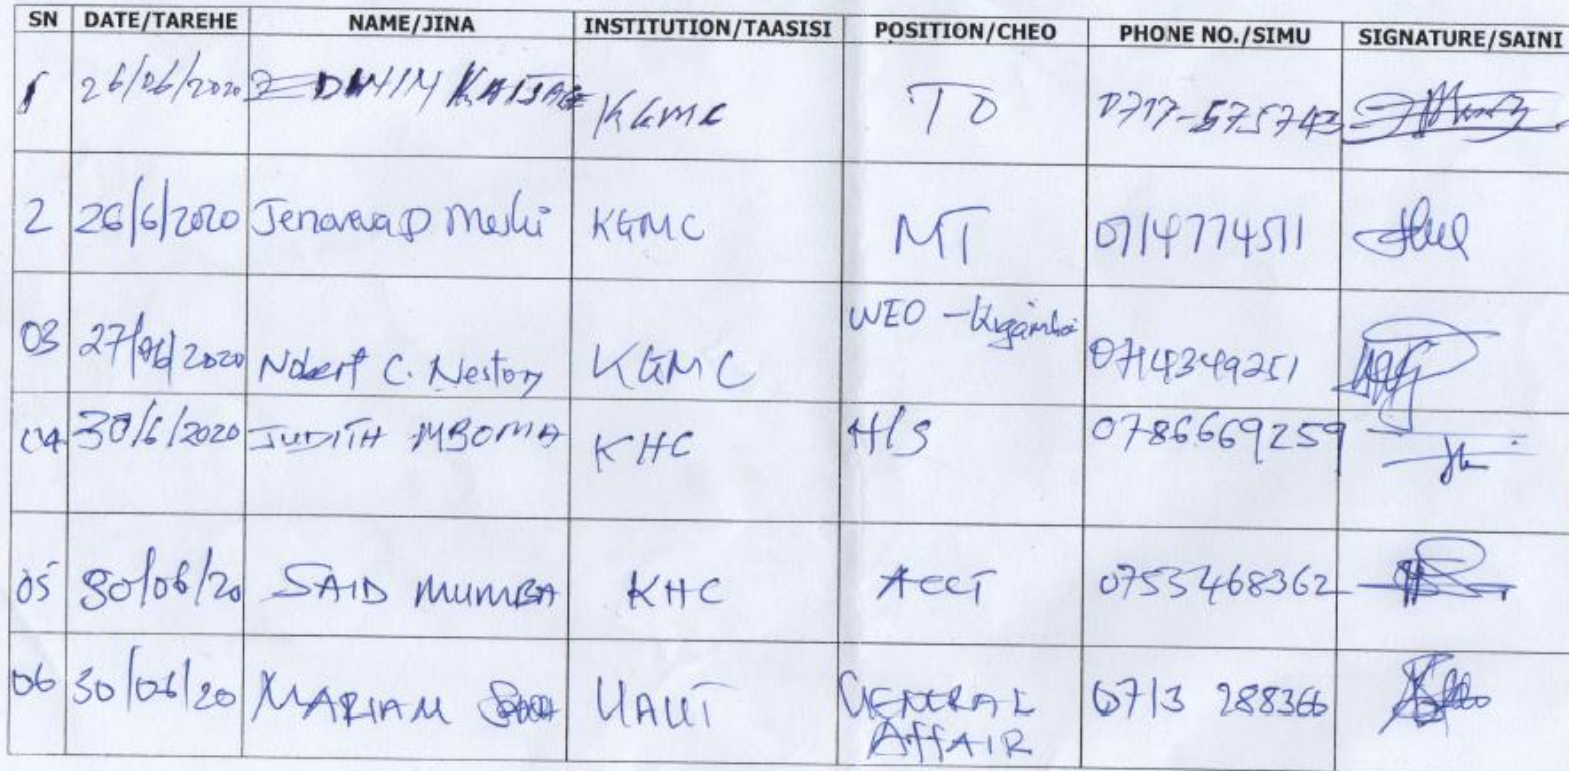 SN DATE/TAREHE NAME/JINA INSTITUTION/TAASISI POSITION/CHEO PHONE NO./SIMU SIGNATURE/SAINI
1 26/06/2020 EDWIN KAIJAGE KGMC TO 0717-575743
2 26/6/2020 KGMC MT 0714774511
03 27/06/2020 Nobert C. Nestory KGMC WEO - Kigamboni 0714349251
04 30/6/2020 JUDITH MBOMA KHC H/S 0786669259
05 30/06/20 SAID MUMBA KHC ACCT 0753468362
06 30/06/20 MARIAM GENERAL 0713 288366
AFFAIR